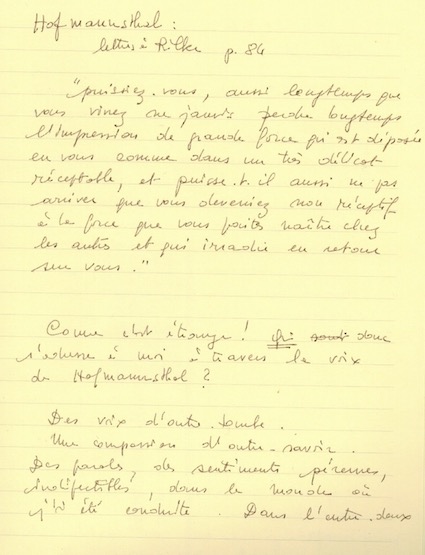 Hofmannsthal :
lettre à Rilke p. 84
"puissiez-vous, aussi longtemps que
vous vivez ne jamais perdre longtemps
l'impression de grande force qui est déposée
en vous comme dans un très délicat
réceptable, et puisse-t-il aussi ne pas
arriver que vous deveniez non réceptif
à la force que vous faites naître chez
les autres et qui irradie en retour
sur vous."
Comme c'est étrange ! qui donc
s'adresse à moi à travers la voix
de Hofmannsthal ?
Des voix d'outre-tombe.
Une compassion d'outre-savoir.
Des paroles, des sentiments pérennes,
indéfectibles, dans le monde où
j'ai été conduite. Dans l'entre-deux